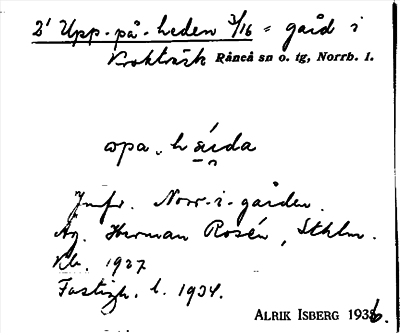 2' Upp-på-heden 3/16 = gård i
Krokträsk Råneå sn o. tg, Norrb. l.
opa-hɑ́ida
Jmfr. Norr-i-gården.
Äg. Herman Rosén, Sthlm.
Kb. 1927
Fastigh. l. 1934.
ALRIK ISBERG 1936.